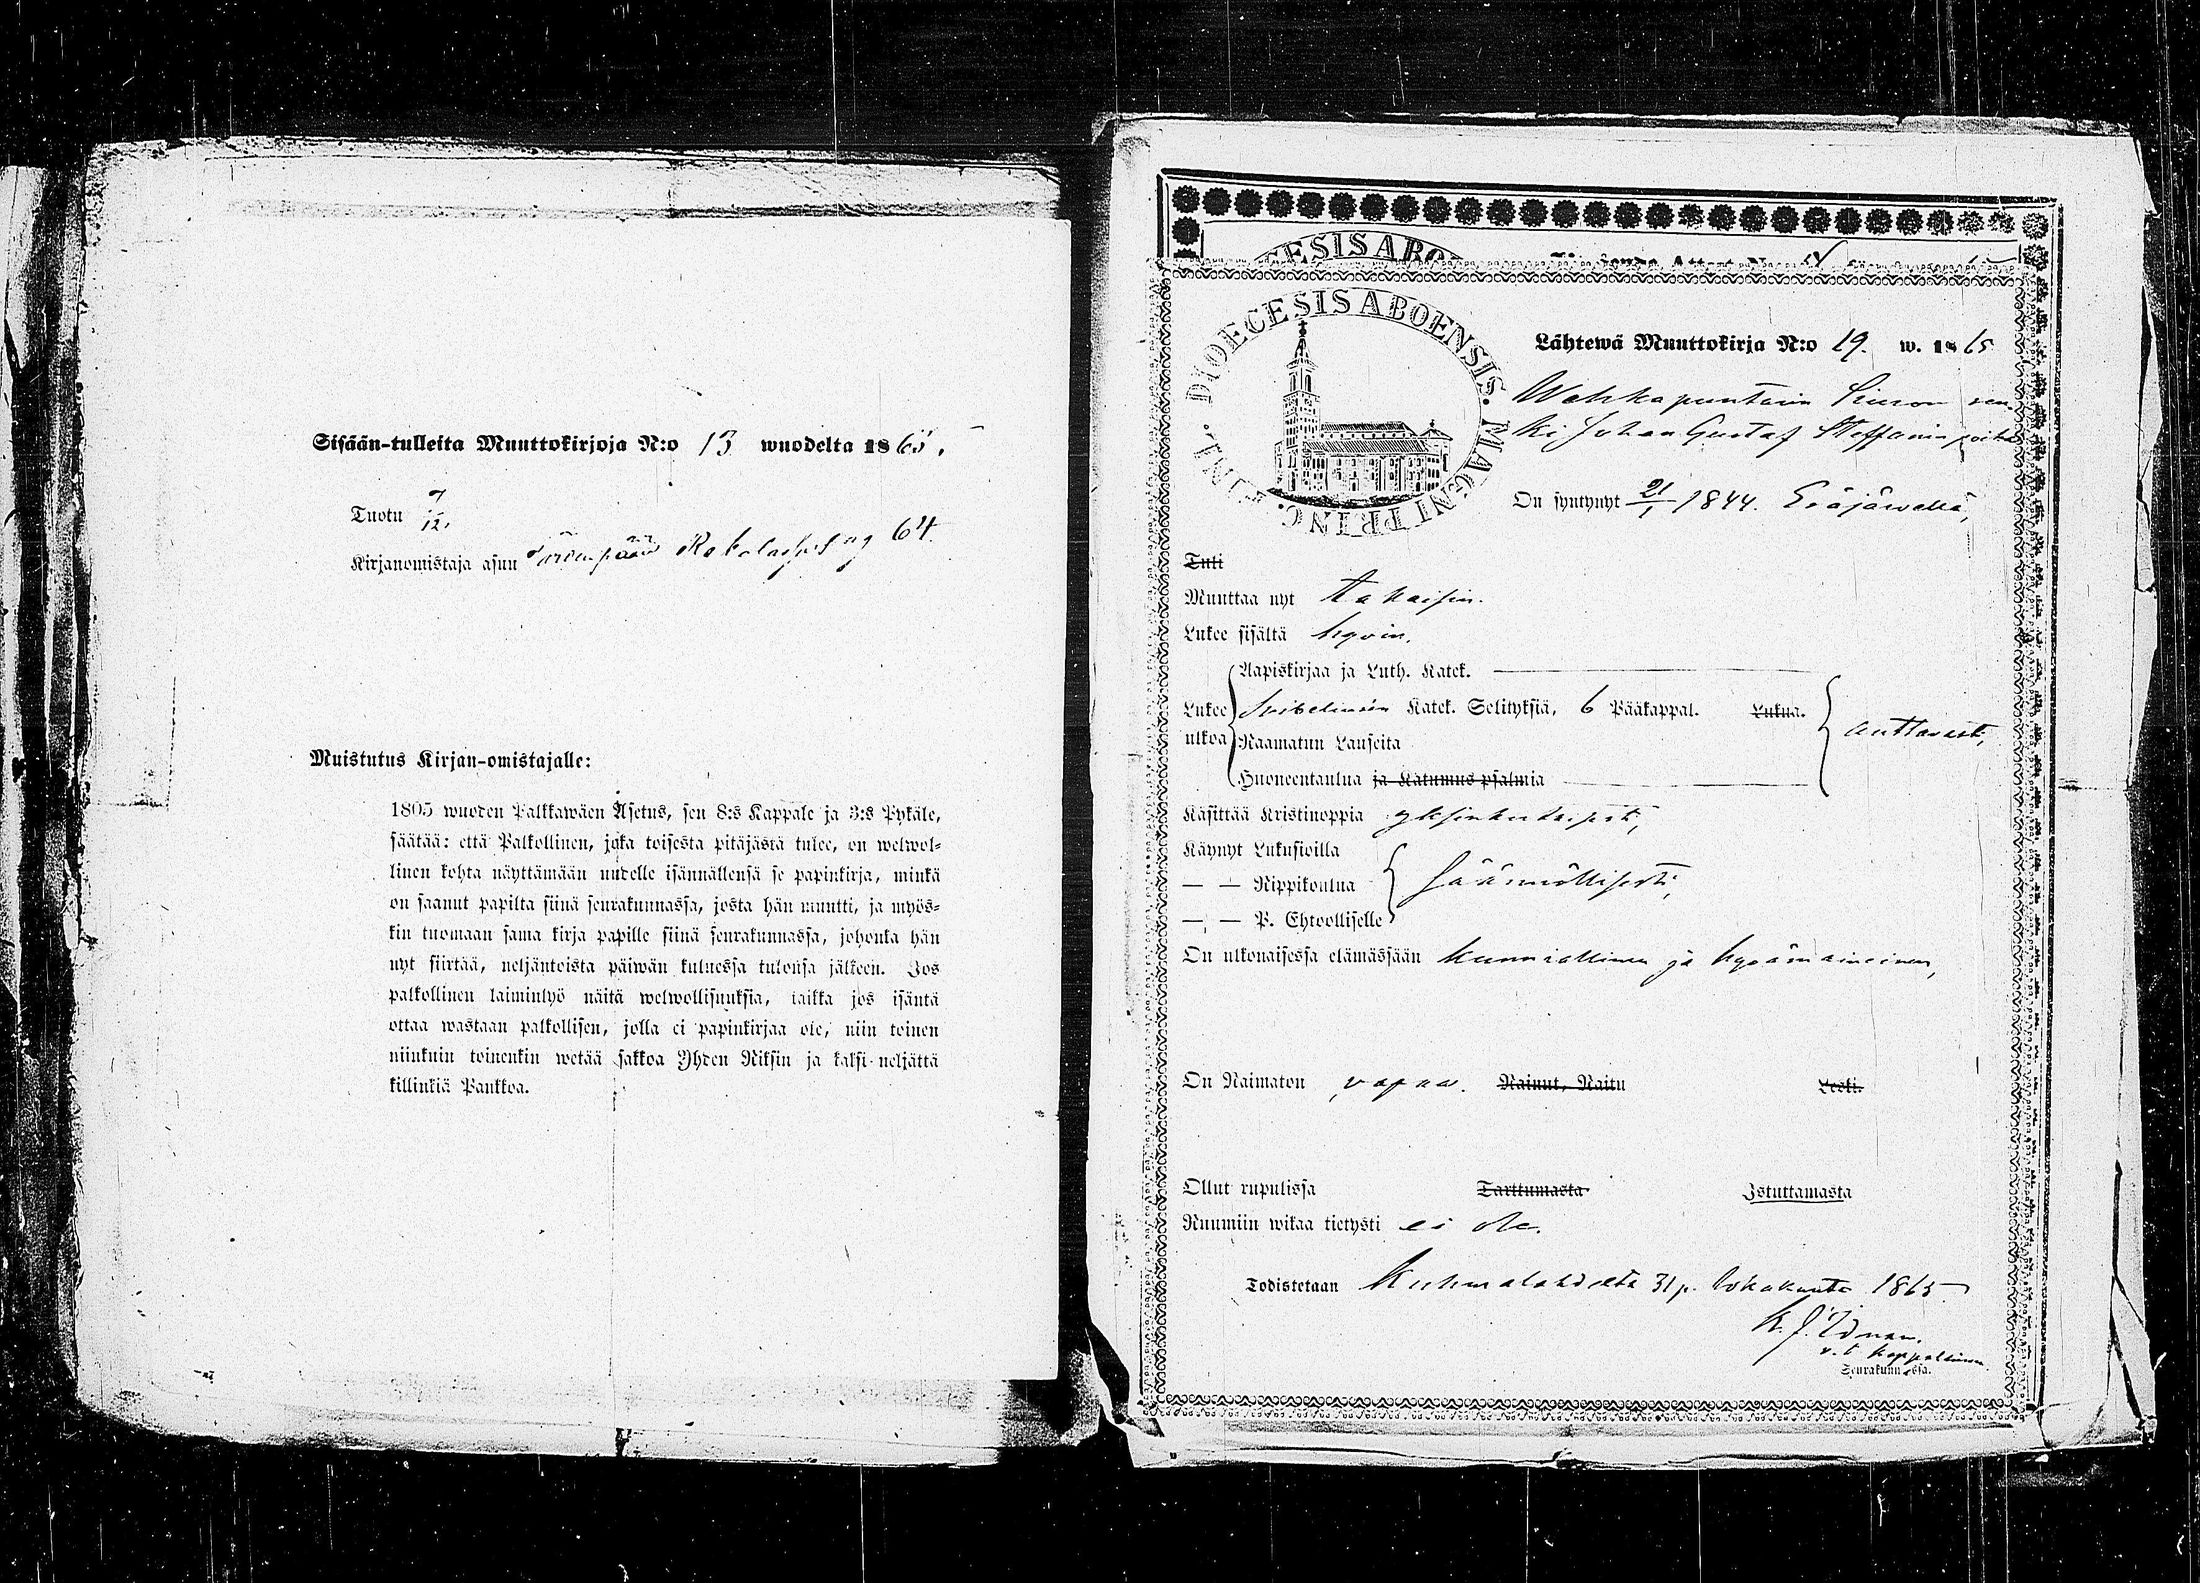 Sisään-tulleita Muuttokirjoja N:o 13 wuodelta 1865.
Tuotu 7/12.
Kirjanomistaja asuu pag 64.
Muistutus Kirjan-omistajalle:
1805 wuoden Palkkawäen Asetus, sen 8:s Kappale ja 3:s Pykäle,
säätää: että Palkollinen, joka toisesta pitäjästä tulee, on welwol-
linen kohta näyttämään uudelle isännällensä se papinkirja, minkä
on saanut papilta siinä seurakunnassa, josta hän muutti, ja myös-
kin tuomaan sama kirja papille siinä seurakunnassa, johonka hän
nyt siirtää, neljäntoista päiwän kuluessa tulonsa jälkeen. Jos
palkollinen laiminlyö näitä welwollisuuksia, taikka jos isäntä
ottaa wastaan palkollisen, jolla ei papinkirjaa ole, niin toinen
niinkuin toinenkin wetää sakkoa Yhden Riksin ja kaksi neljättä
killinkiä Pankkoa.
DIOECESIS ABOENSIS. MAGNI PRINC. FINL.
Lähtewä Muuttokirja N:o 19. w. 1865
Wehkapuntarin ren-
ki Johan Gustaf Steffanin poika
On syntynyt 21/1 1844. Eräjärwellä,
Tuli
Muuttaa nyt takaisin.
Lukee sisältä hywin,
Aapiskirjaa ja Luth. Katek.
Lukee Svebeliuksen Katek. Selityksiä, 6 Pääkappal. Lukua.
ulkoa Raamatun Lauseita auttavasti,
Huoneentaulua ja Katumus-psalmia
Käsittää Kristinoppia yksinkertaisesti,
Käynyt Lukusioilla
— — Rippikoulua säännöllisesti,
— — P. Ehtoolliselle
On ulkonaisessa elämässään kunniallinen ja hyvämaineinen,
On Naimaton, vapaa. Nainut, Naitu Leski.
Ollut rupulissa Tarttumasta Istuttamasta
Ruumiin wikaa tietysti ei ole.
Todistetaan Kuhmalahdelta 31 p. lokakuuta 1865
K. J.
v. t. kappalainen
Seurakunnassa.